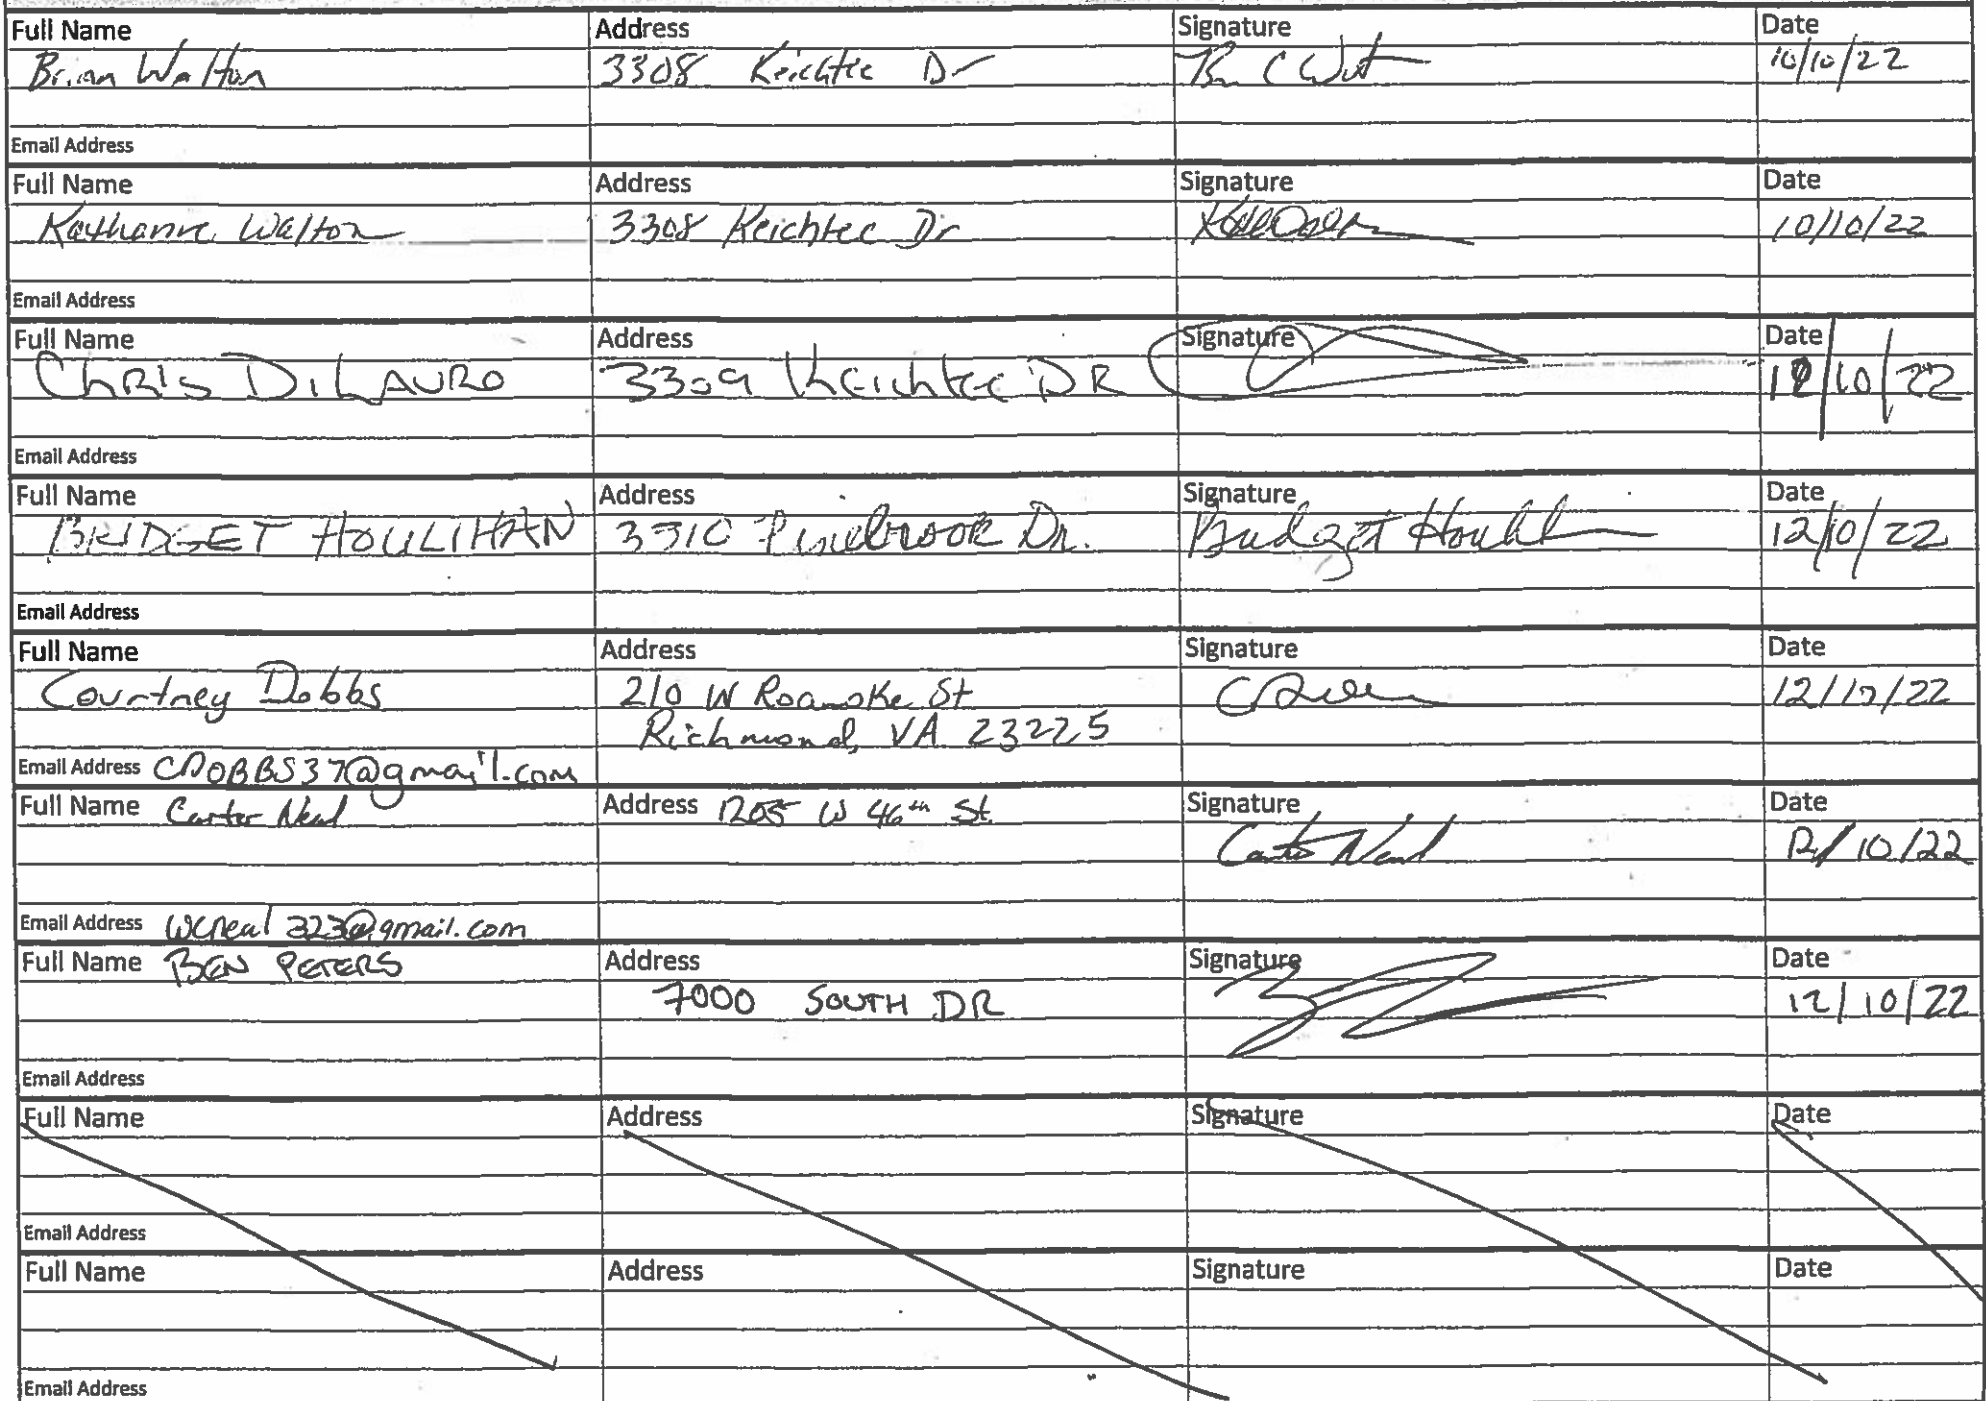 Full Name Address Signature Date
Brian Walton 3308 Keichtec Dr 10/10/22
Email Address
Full Name Address Signature Date
Katharine Walton 3308 Keichtec Dr 10/10/22
Email Address
Full Name Address Signature Date
ChRis DiLAURO 3309 Keichtec DR 10/22
Email Address
Full Name Address Signature Date
BRIDGET HOULIHAN 3310 Pinebrook Dr. Bridget Houlihan 12/10/22
Email Address
Full Name Address Signature Date
Courtney Dobbs 210 W Roanoke St 12/10/22
Richmond, VA 23225
Email Address CDOBBS37@gmail.com
Full Name Carter Neal Address 1205 W 46th St. Signature Date
Carter Neal 12/10/22
Email Address wcneal323@gmail.com
Full Name BEN PETERS Address Signature Date
7000 SOUTH DR 12/10/22
Email Address
Full Name Address Signature Date
Email Address
Full Name Address Signature Date
Email Address